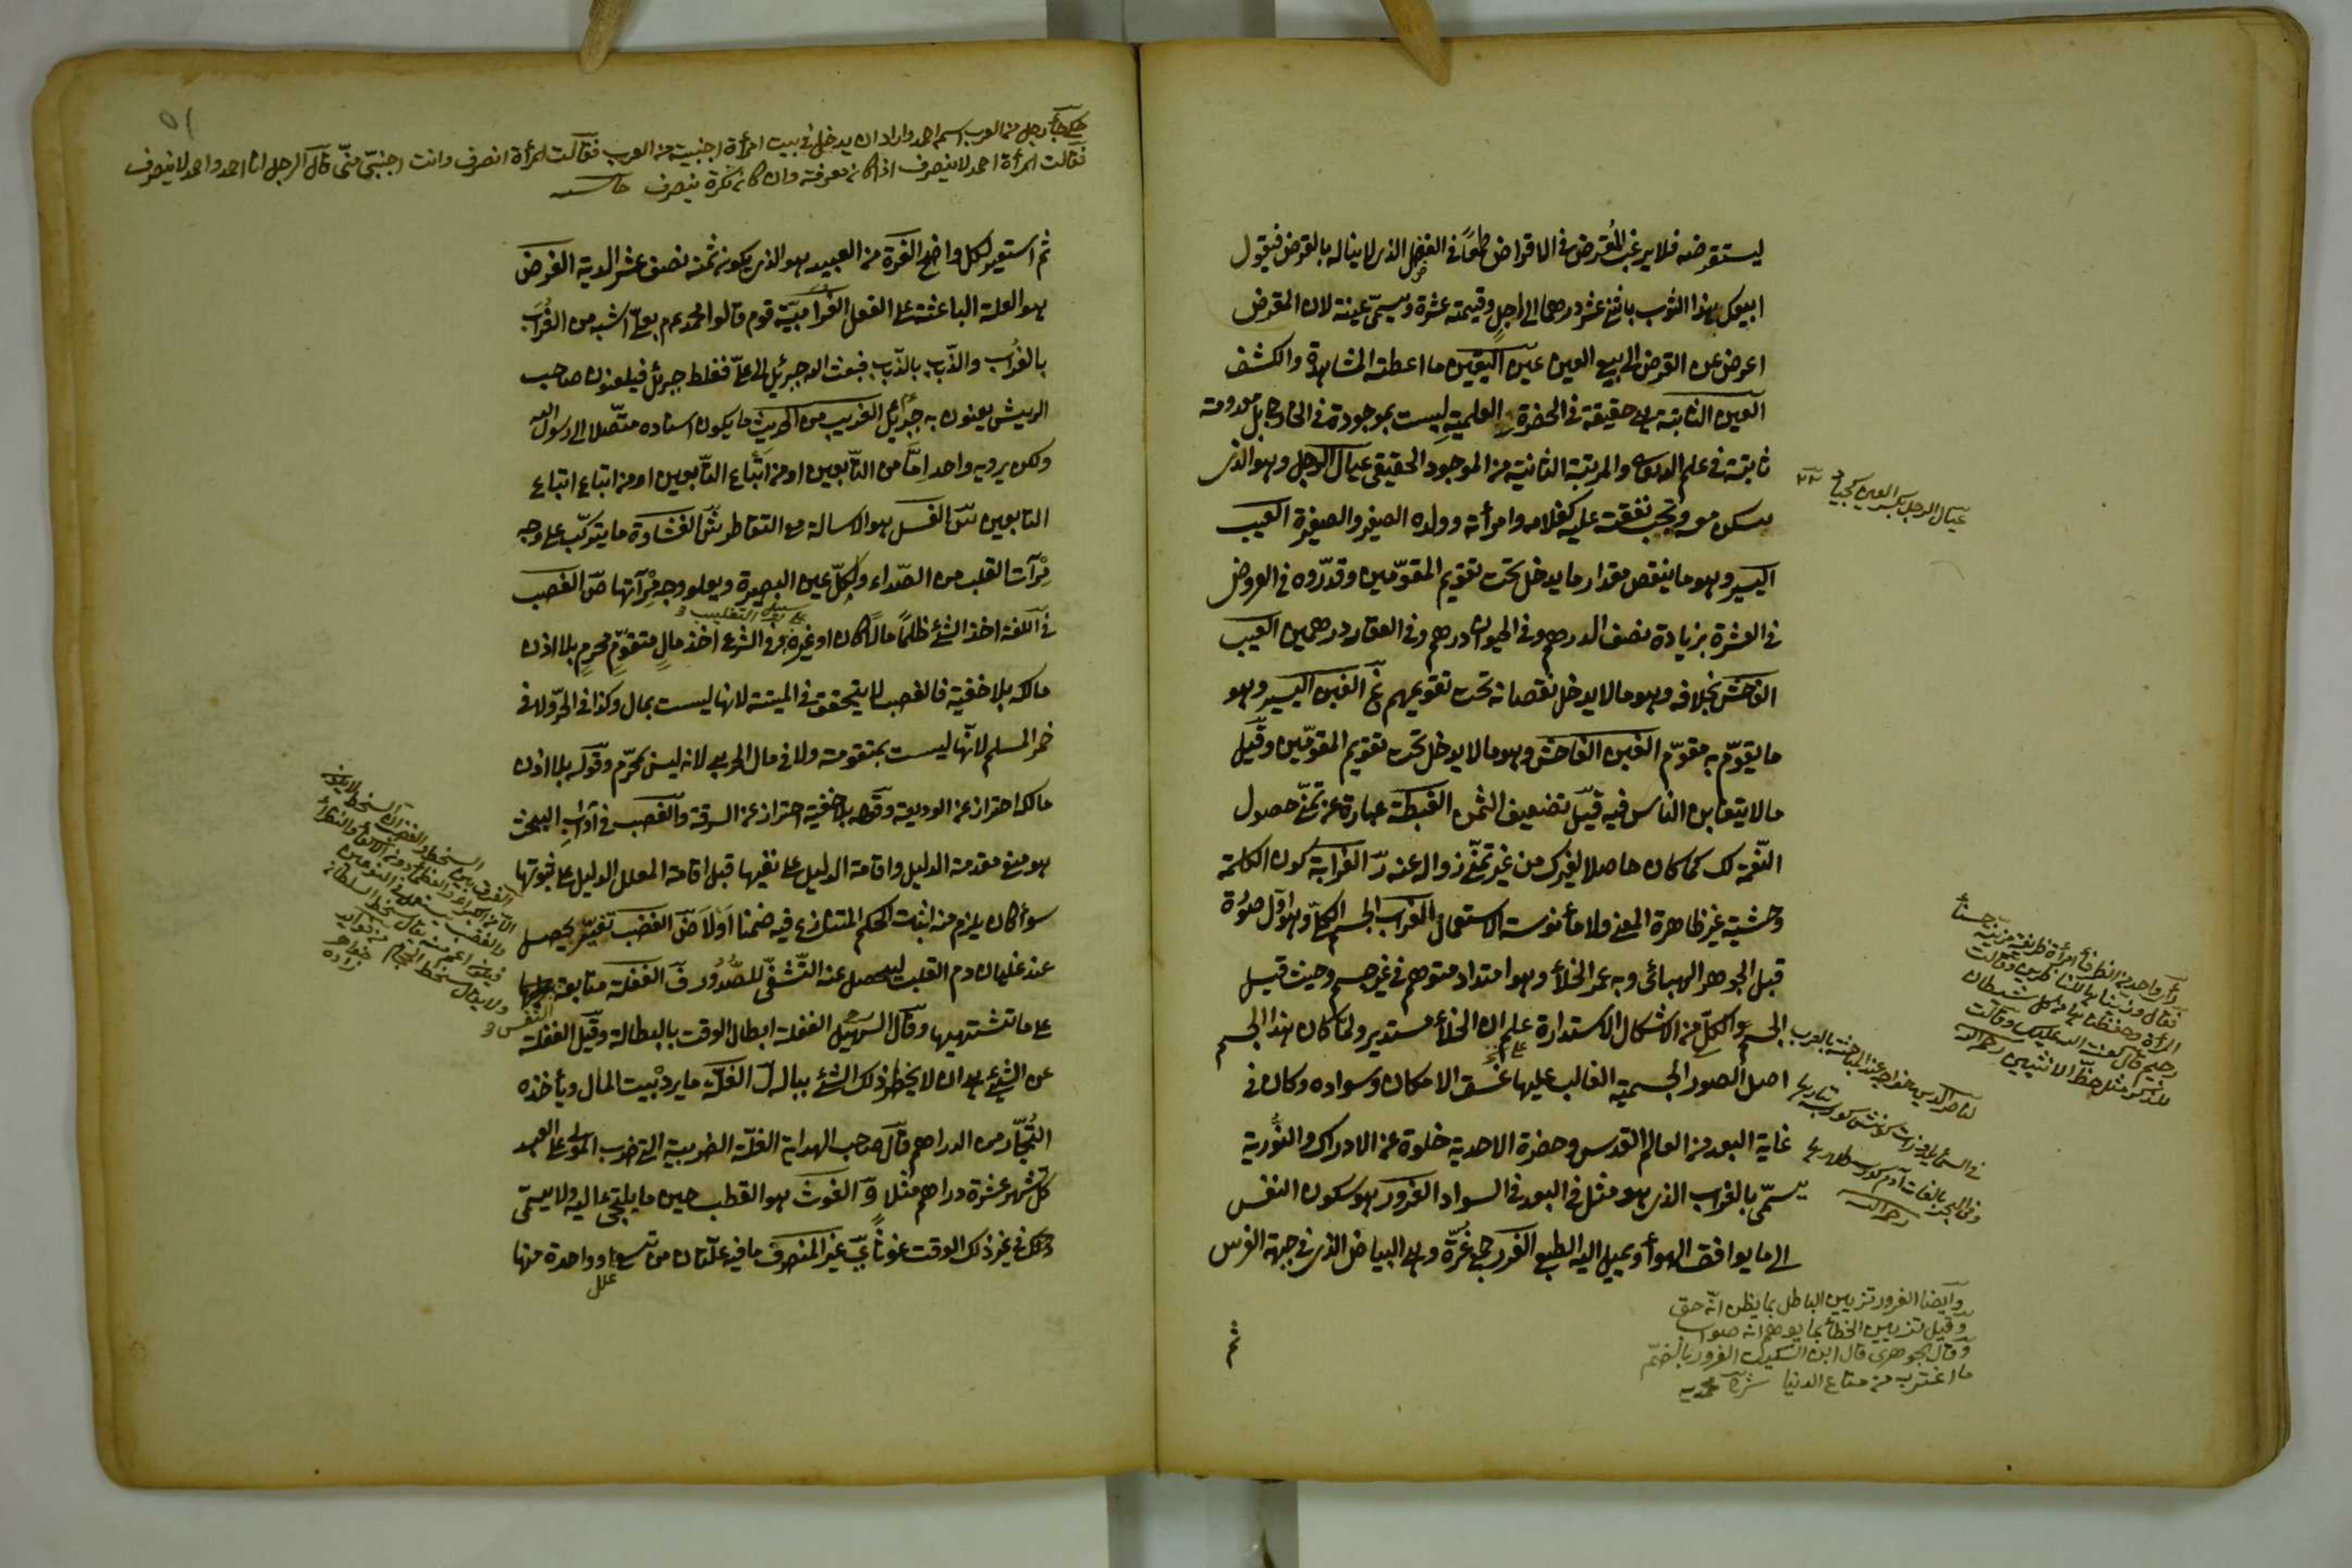 ليستقرضه فلا يرغب المقرض في الاقراض طمعًا في الفضل الذي لا يناله بالقرض فيقول
ابيعك هذا الثوب باثني عشر درهما الى اجل وقيمته عشرة ويسمى عينة لان المقرض
اعرض عن القرض الى بيع العين عين اليقين ما اعطته المشاهدة والكشف
العين الثابتة هي حقيقة في الحضرة العلمية ليست بموجودة في الخارج بل معدومة
ثابتة في علم الله تعالى والمرتبة الثانية من الموجود الحقيقي عيال الرجل وهو الذي
يسكن معه وتجب نفقته عليه كغلامه وامرأته وولده الصغير والصغيرة العيب
اليسير وهو ما ينقص مقدار ما يدخل تحت تقويم المقومين وقدروه في العروض
في العشرة بزيادة نصف الدرهم وفي الحيوان درهم وفي العقار درهمين العيب
الفاحش بخلافه وهو ما لا يدخل نقصانه تحت تقويمهم غ الغبن اليسير وهو
ما يقوم به مقوم الغبن الفاحش وهو ما لا يدخل تحت تقويم المقومين وقيل
ما لا يتغابن الناس فيه قيل تضعيف الثمن الغبطة عبارة عن تمني حصول
النعمة لك كما كان حاصلا لغيرك من غير تمني زواله عنه ر الغرابة كون الكلمة
وحشية غير ظاهرة المعنى ولا مأنوسة الاستعمال الغراب الجسم الكلي وهو اول صورة
قبل الجوهر الهبائي وبه عمر الخلأ وهو امتداد متوهم في غير جسم وحيث قبل
الجسم الكل من الاشكال الاستدارة علم ان الخلأ مستدير ولما كان هذا الجسم
اصل الصور الجسمية الغالب عليها غسق الامكان وسواده وكان في
غاية البعد من العالم القدس وحضرة الاحدية خلوه عن الادراك والنورية
يسمى بالغراب الذي هو مثل في البعد في السواد الغرور هو سكون النفس
الى ما يوافق الهوأ ويميل اليه الطبع الغرر جمع غرة وهي البياض الذي في جبهة الفرس
عيال الرجل بكسر العين
رأى واحد من امرأة ظريفة مزينة حسنأ
فقال وزيناها للناظرين وقالت
المرأة وحفظناها من كل شيطان
رجيم قال لعنة الله عليك وقالت
للذكر مثل حظ الانثيين رحمه الله
وايضا الغرور تزيين الباطل بما يظن انه حق
وقيل تزيين الخطأ بما يوهم انه صواب
وقال الجوهري قال ابن السكيت الغرور بالضم
ما اغتر به من متاع الدنيا
ثم
٥١
جاء رجل من العرب اسمه احمد واراد ان يدخل في بيت امرأة اجنبية من العرب فقالت المرأة انصرف وانت اجنبي مني قال الرجل انا احمد واحمد لا ينصرف
فقالت المرأة احمد لا ينصرف اذا كان معرفة وان كان نكرة ينصرف
ثم استعير لكل واضح الغرة من العبيد هو الذي يكون ثمنه نصف عشر الدية الغرض
هو العلة الباعثة على الفعل الغرابية قوم قالوا محمد عم بعلي اشبه من الغراب
بالغراب والذباب بالذباب فبعث الله جبرئيل الى علي فغلط جبرئل فيلعنون صاحب
الريش يعنون به جبرائيل الغريب من الحديث ما يكون اسناده متصلا الى رسول الله
ولكن يرويه واحد اما من التابعين او من اتباع التابعين او من اتباع اتباع
التابعين س الغسل هو الاسالة مع التقاطر ش الغشاوة ما يتركب على وجه
مرآت القلب من الصداء ويكل عين البصيرة ويعلو وجه مرآتها ص الغصب
في اللغة اخذ الشئ ظلما مالا كان او غيره وفي الشرع اخذ مال متقوم محترم بلا اذن
مالكه بلا خفية فالغصب لا يتحقق في الميتة لانها ليست بمال وكذا في الحر ولا في
خمر المسلم لانها ليست بمتقومة ولا في مال الحربي لانه ليس بمحترم وقوله بلا اذن
مالكه احتراز عن الوديعة وقوله بلا خفية احتراز عن السرقة والغصب في آداب البحث
هو منع مقدمة الدليل واقامة الدليل على نفيها قبل اقامة المعلل الدليل على ثبوتها
سوأ كان يلزم منه اثبات الحكم المتنازع فيه ضمنا اولا ض الغضب تغير يحصل
عند غليان دم القلب ليحصل عنه التشفي للصدور ف الغفلة متابعة
النفس
على ما تشتهيها وقال السهيل الغفلة ابطال الوقت بالبطالة وقيل الغفلة
عن الشئ هو ان لا يخطر ذلك الشئ بباله ل الغلة ما يرد بيت المال ويأخذه
التجار من الدراهم قال صاحب الهداية الغلة الضريبة التي ضرب المولى على العبد
كل شهر عشرة دراهم مثلا و الغوث هو القطب حين ما يلتجى اليه ولا يسمى
في غير ذلك الوقت غوثا ي غير المنصرف ما فيه علتان من تسع او واحدة منها
علل
الفرق بين السخط والغضب ان السخط لا يكون